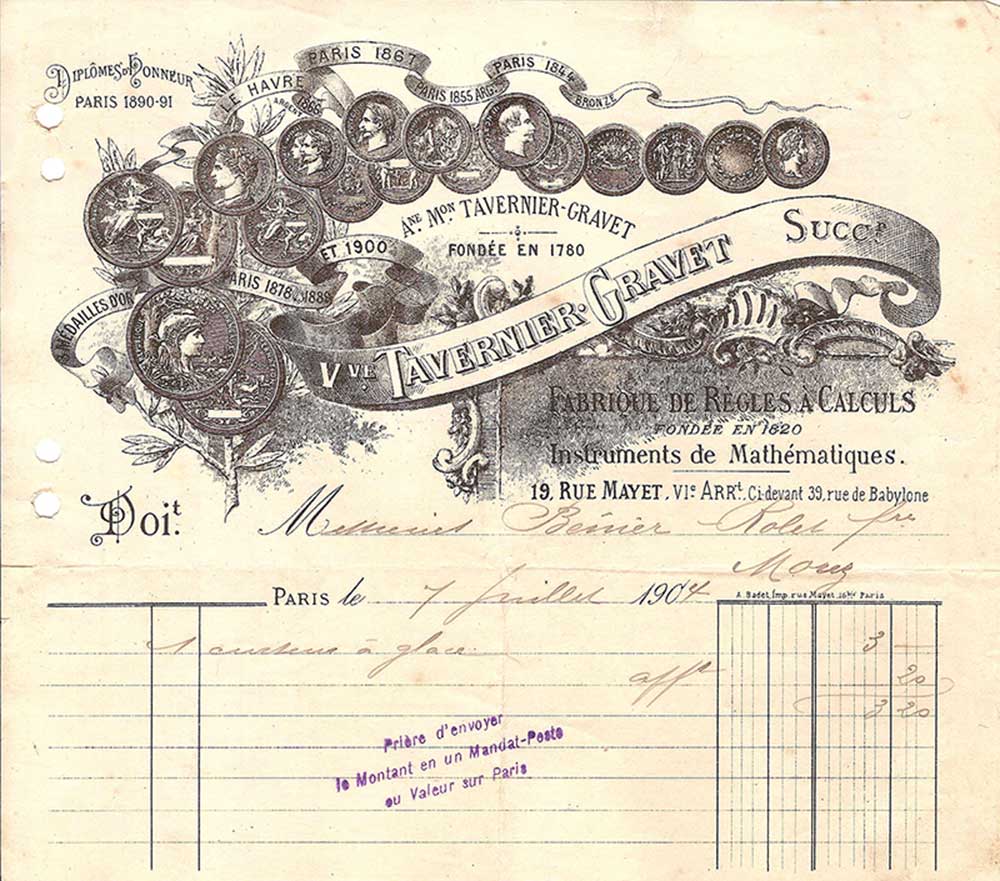 Diplômes d'Honneur
PARIS 1890-91
LE HAVRE
1868
ARGENT
PARIS 1867
PARIS 1855 ARG.
PARIS 1844
BRONZE
Ane Mon TAVERNIER-GRAVET
FONDÉE EN 1780
MÉDAILLES D'OR
PARIS 1878, 1889
ET 1900
Vve TAVERNIER-GRAVET Succr
FABRIQUE DE RÈGLES À CALCULS
FONDÉE EN 1820
Instruments de Mathématiques.
19, RUE MAYET, VIe ARRt, Ci-devant 39, rue de Babylone
Doit. Messieurs
PARIS le 7 Juillet 1904
A. Badet, Imp. rue Mayet, Paris
1 curseur à glace 3 —
afft 20
3 20
Prière d'envoyer
le Montant en un Mandat-Poste
ou Valeur sur Paris